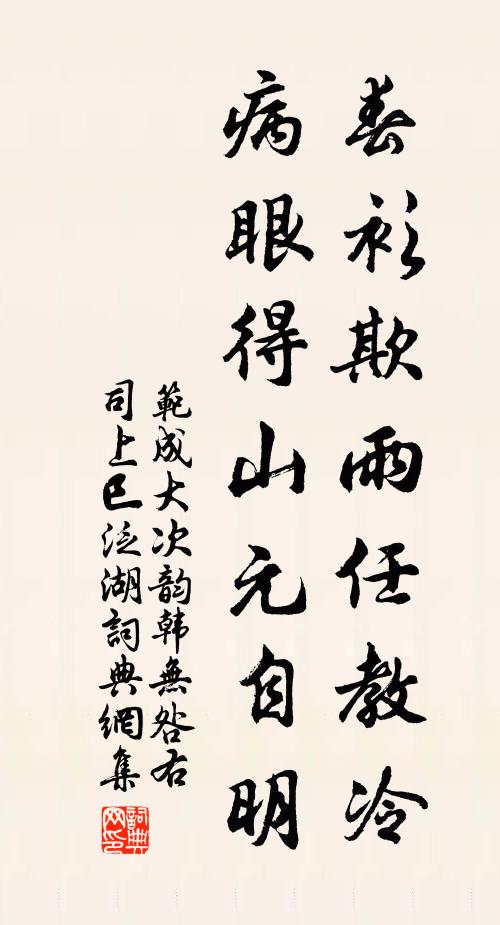 春衫欺雨任教冷
病眼得山元自明
範成大次韵韩無咎右
司上巳泛湖詞典網集
詞典
网印